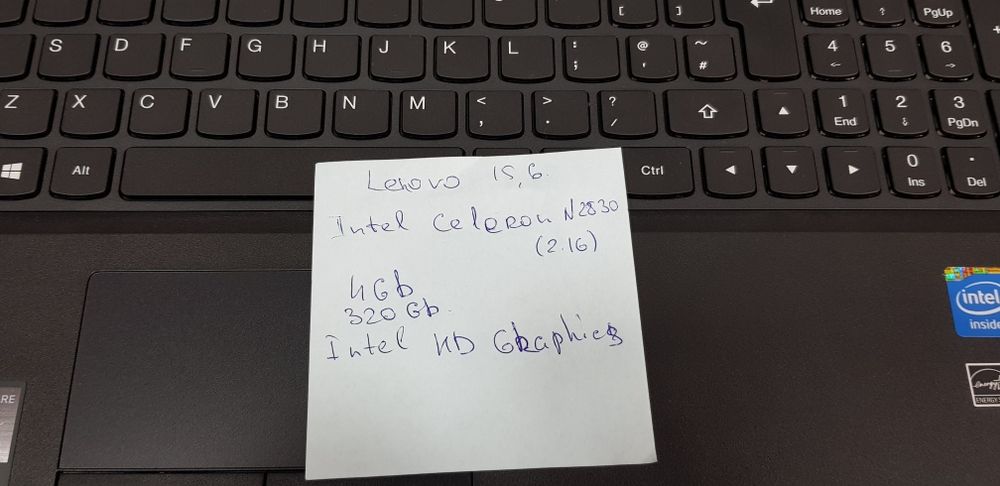 [ ]
Home ? PgUp
S D F G H J K L : ; @ ' ~ # 4 ← 5 6 →
Z X C V B N M < , > . ? / 1 End 2 ↓ 3 PgDn
Alt Ctrl 0 Ins . Del
Lenovo 15,6.
Intel Celeron N2830
(2.16)
4Gb
320 Gb.
Intel HD Graphics
intel
inside
RE
ENERGY S